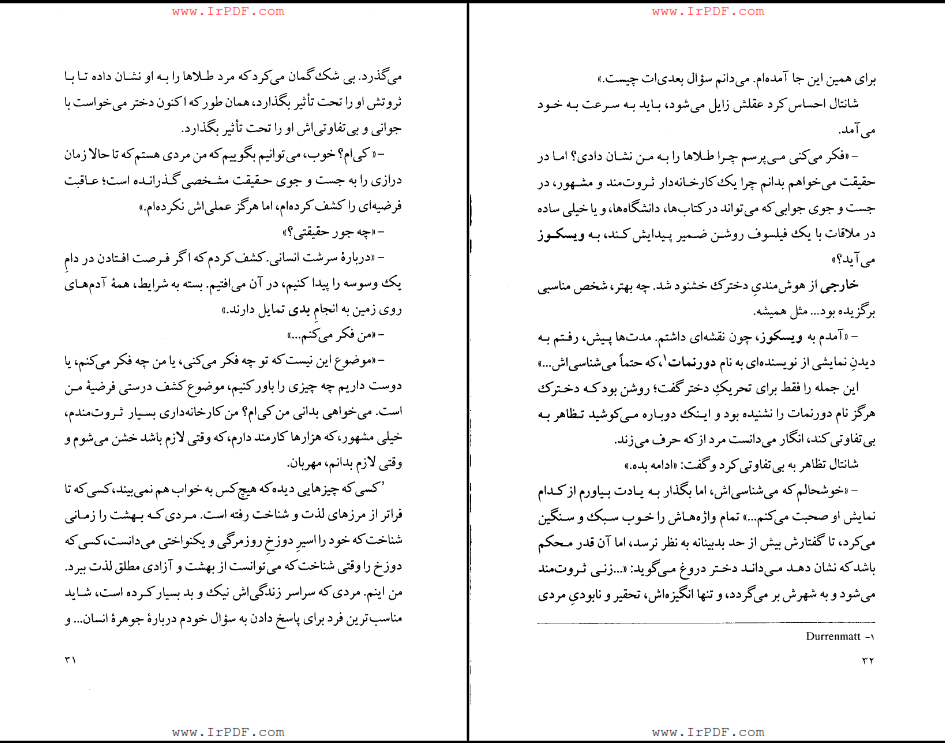 www.IrPDF.com
می‌گذرد. بی شک گمان می‌کرد که مرد طلاها را به او نشان داده تا با
ثروتش او را تحت تأثیر بگذارد، همان طور که اکنون دختر می‌خواست با
جوانی و بی‌تفاوتی‌اش او را تحت تأثیر بگذارد.
– «کی‌ام؟ خوب، می‌توانیم بگوییم که من مردی هستم که تا حالا زمان
درازی را به جست و جوی حقیقت مشخصی گذرانده است؛ عاقبت
فرضیه‌ای را کشف کرده‌ام، اما هرگز عملی‌اش نکرده‌ام.»
– «چه جور حقیقتی؟»
– «دربارهٔ سرشت انسانی. کشف کردم که اگر فرصت افتادن در دامِ
یک وسوسه را پیدا کنیم، در آن می‌افتیم. بسته به شرایط، همهٔ آدم‌های
روی زمین به انجامِ بدی تمایل دارند.»
– «من فکر می‌کنم...»
– «موضوع این نیست که تو چه فکر می‌کنی، یا من چه فکر می‌کنم، یا
دوست داریم چه چیزی را باور کنیم، موضوع کشف درستی فرضیهٔ من
است. می‌خواهی بدانی من کی‌ام؟ من کارخانه‌داری بسیار ثروت‌مندم،
خیلی مشهور، که هزارها کارمند دارم، که وقتی لازم باشد خشن می‌شوم و
وقتی لازم بدانم، مهربان.
'کسی که چیزهایی دیده که هیچ‌کس به خواب هم نمی‌بیند، کسی که تا
فراتر از مرزهای لذت و شناخت رفته است. مردی که بهشت را زمانی
شناخت که خود را اسیرِ دوزخِ روزمرگی و یکنواختی می‌دانست، کسی که
دوزخ را وقتی شناخت که می‌توانست از بهشت و آزادی مطلق لذت ببرد.
من اینم. مردی که سراسر زندگی‌اش نیک و بد بسیار کرده است، شاید
مناسب‌ترین فرد برای پاسخ دادن به سؤال خودم دربارهٔ جوهرهٔ انسان... و
۳۱
www.IrPDF.com
www.IrPDF.com
برای همین این جا آمده‌ام. می‌دانم سؤال بعدی‌ات چیست.»
شانتال احساس کرد عقلش زایل می‌شود، باید به سرعت به خود
می‌آمد.
– «فکر می‌کنی می‌پرسم چرا طلاها را به من نشان دادی؟ اما در
حقیقت می‌خواهم بدانم چرا یک کارخانه‌دار ثروت‌مند و مشهور، در
جست و جوی جوابی که می‌تواند در کتاب‌ها، دانشگاه‌ها، و یا خیلی ساده
در ملاقات با یک فیلسوف روشن ضمیر پیدایش کند، به ویسکوز
می‌آید؟»
خارجی از هوش‌مندیِ دخترک خشنود شد. چه بهتر، شخص مناسبی
برگزیده بود... مثل همیشه.
– «آمدم به ویسکوز، چون نقشه‌ای داشتم. مدت‌ها پیش، رفتم به
دیدنِ نمایشی از نویسنده‌ای به نام دورنمات۱، که حتماً می‌شناسی‌اش...»
این جمله را فقط برای تحریکِ دختر گفت؛ روشن بود که دخترک
هرگز نام دورنمات را نشنیده بود و اینک دوباره می‌کوشید تظاهر به
بی‌تفاوتی کند، انگار می‌دانست مرد از که حرف می‌زند.
شانتال تظاهر به بی‌تفاوتی کرد و گفت: «ادامه بده.»
– «خوشحالم که می‌شناسی‌اش، اما بگذار به یادت بیاورم از کدام
نمایش او صحبت می‌کنم...» تمام واژه‌هاش را خوب سبک و سنگین
می‌کرد، تا گفتارش بیش از حد بدبینانه به نظر نرسد، اما آن قدر محکم
باشد که نشان دهد می‌داند دختر دروغ می‌گوید: «...زنی ثروت‌مند
می‌شود و به شهرش بر می‌گردد، و تنها انگیزه‌اش، تحقیر و نابودیِ مردی
۱– Durrenmatt
۳۲
www.IrPDF.com